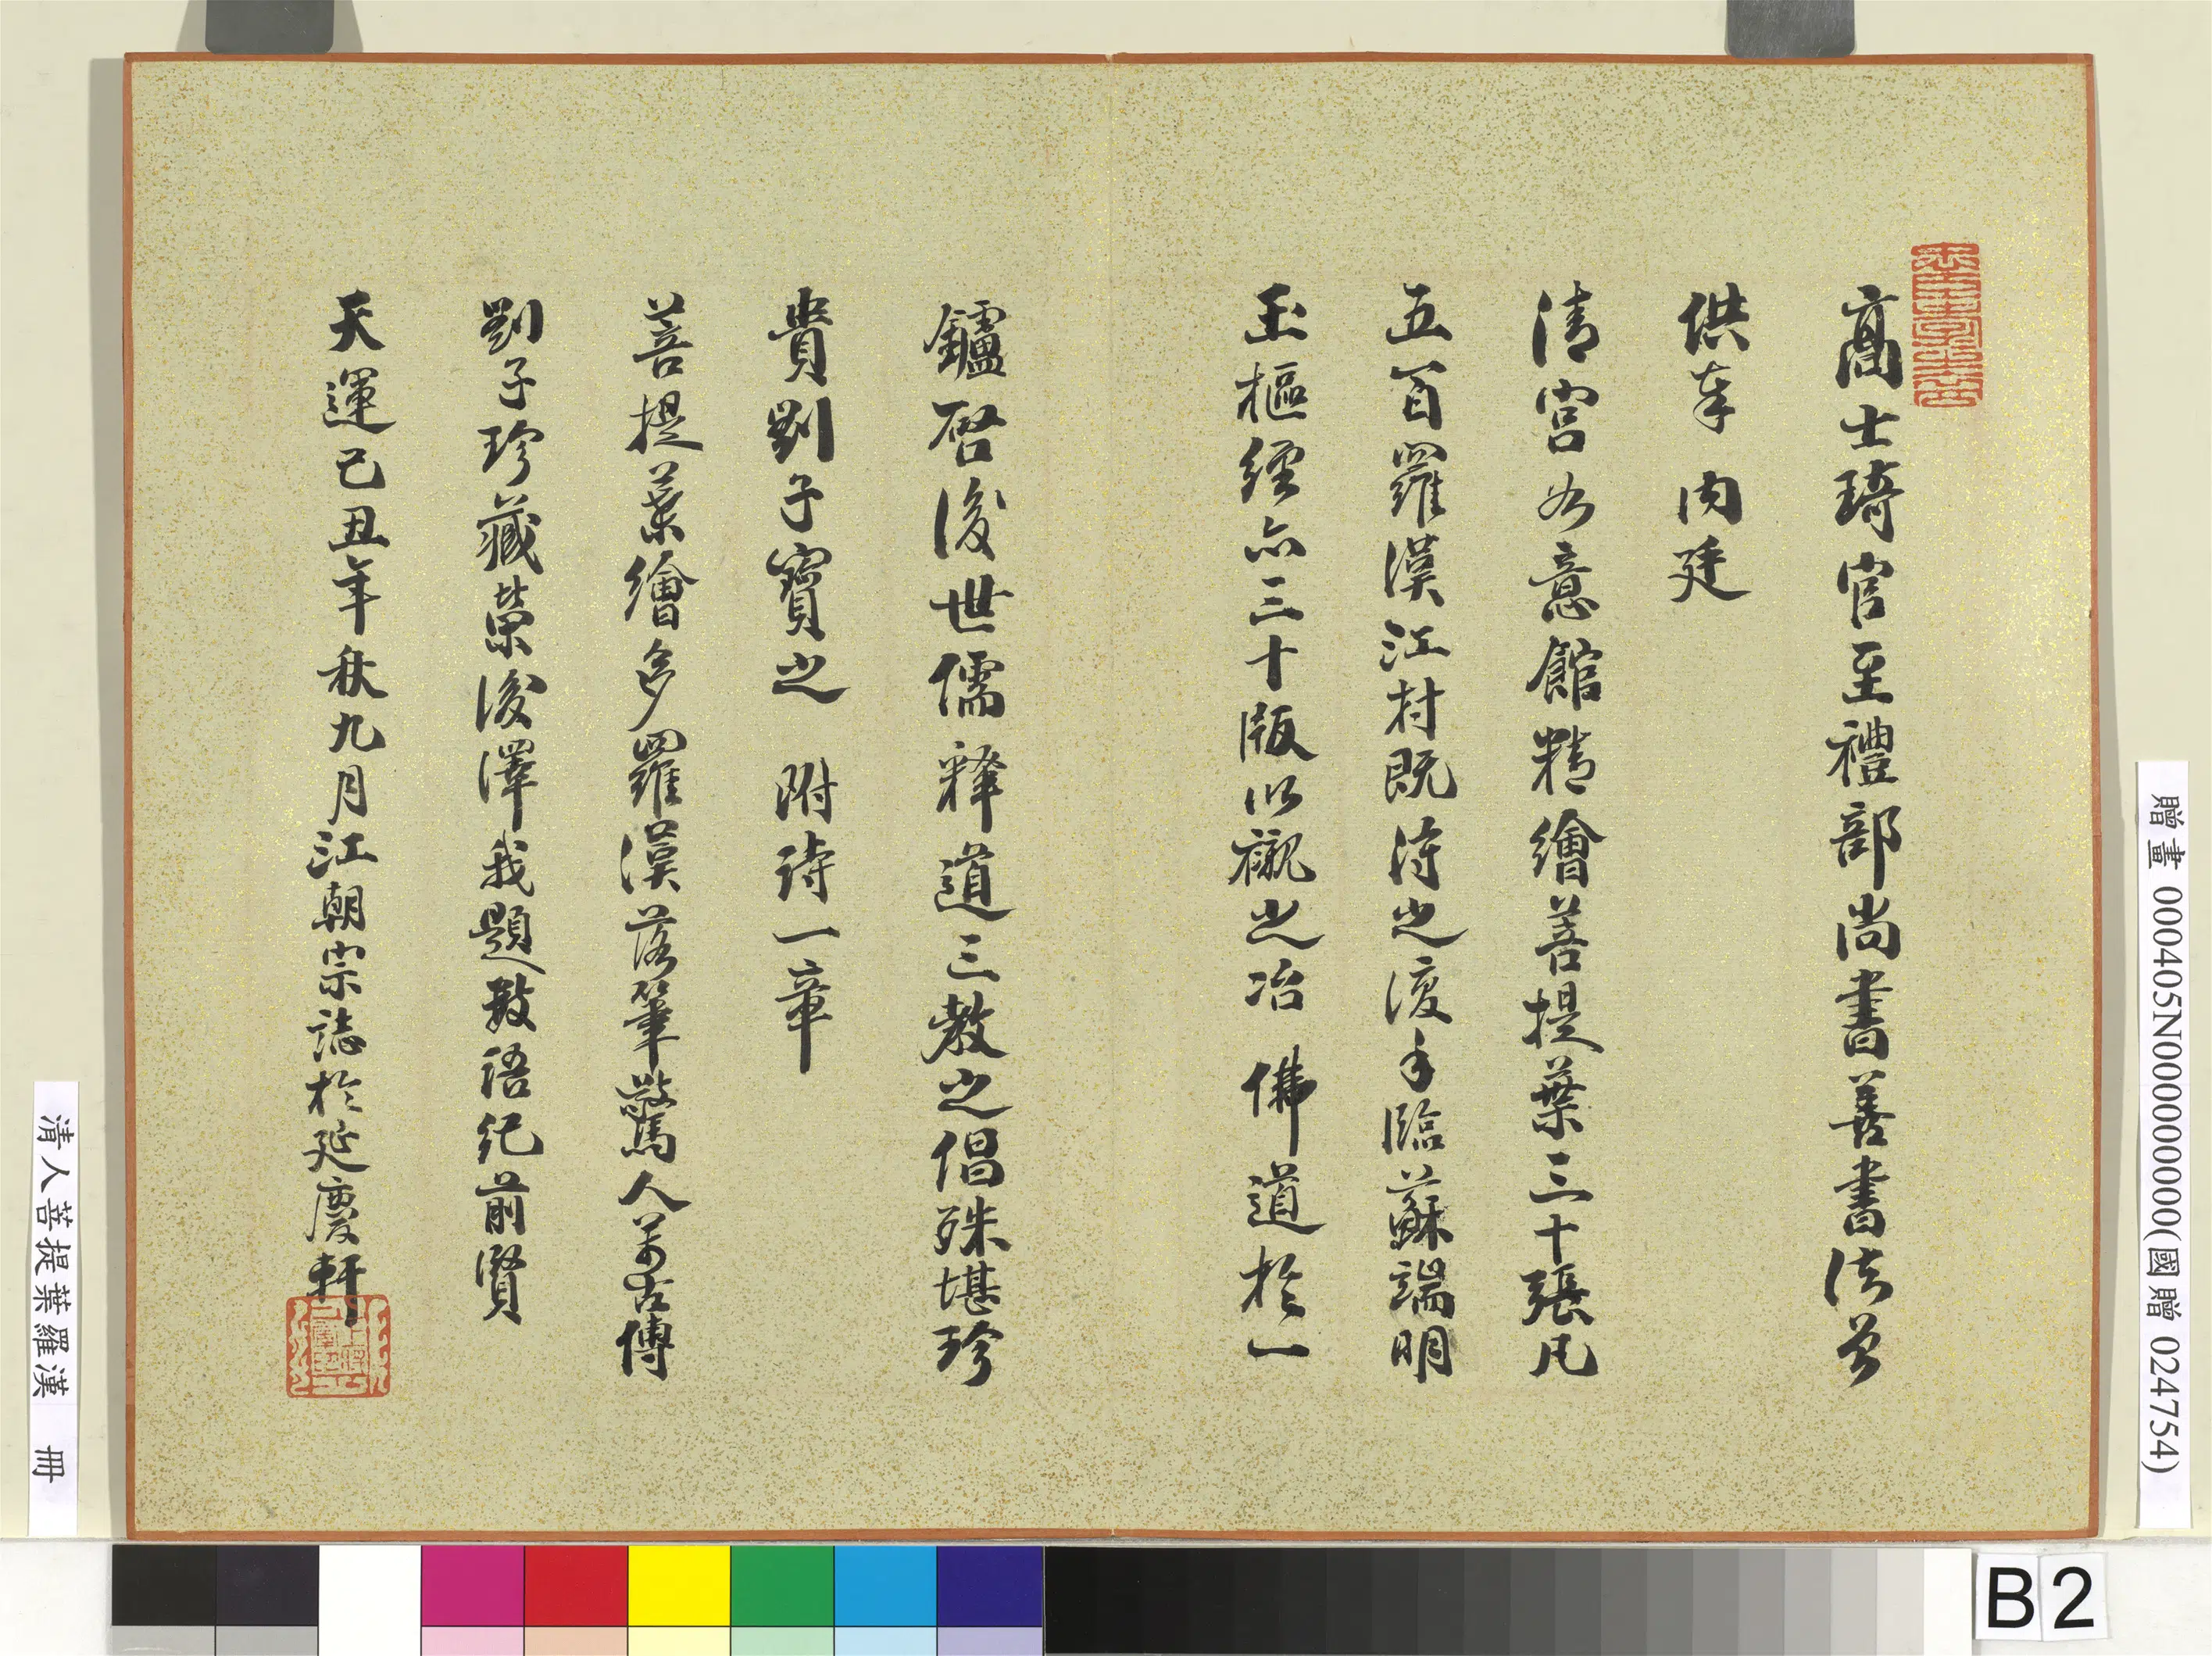 高士琦官至禮部尚書善書法曾
供奉 內廷
清宮如意館精繪菩提葉三十張凡
五百羅漢江村既得之後手臨蘇端明
玉樞經亦三十版以襯之冶 佛道於一
鑪啓後世儒釋道三教之倡殊堪珍
貴劉子寶之 附詩一章
菩提葉繪多羅漢落筆驚人萬古傳
劉子珍藏榮後澤我題數語紀前賢
天運己丑年秋九月江朝宗誌於延慶軒
贈畫 000405N000000000(國贈 024754)
清人菩提葉羅漢 冊
B2